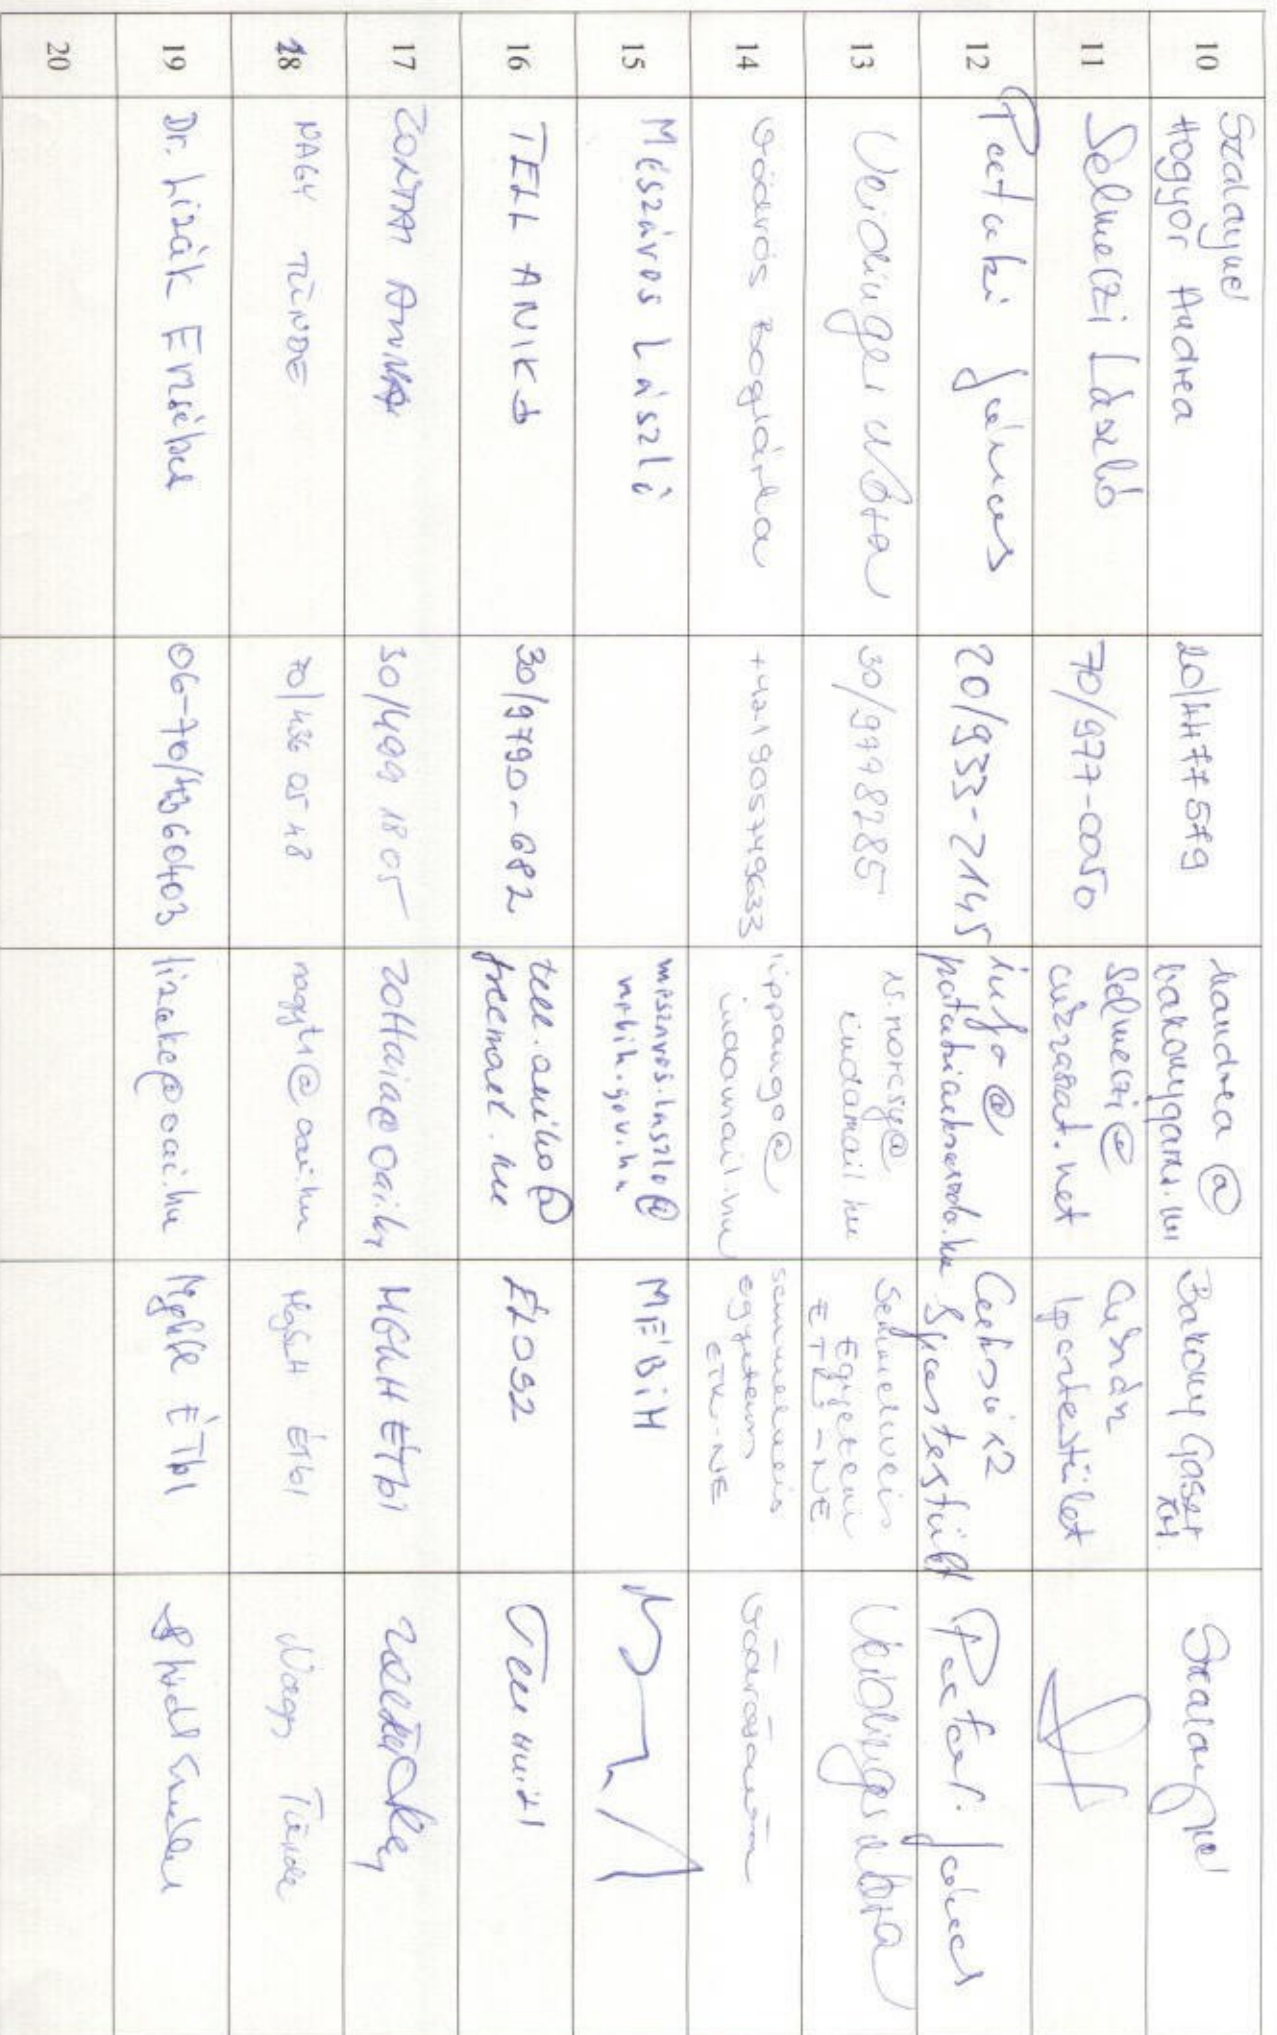 10
Szalayné
Hogyor Andrea
20/4477579
handrea@
bakonygaszt.hu
Bakony Gaszt
Kft.
Szalayné
11
Selmeczi László
70/977-0050
Selmeczi@
cukraszat.net
Cukrász
Ipartestület
12
Pataki János
20/933-2145
info@
patakicukraszda.hu
Cukrász
Ipartestület
Pataki János
13
Veidinger Nóra
30/9998285
indamail.hu
Semmelweis
Egyetem
Veidinger Nóra
14
Vörös Boglárka
+421905749633
lippango@
indamail.hu
semmelweis
egyetem
ETK-NE
15
Mészáros László
meszaros.laszlo@
nebih.gov.hu
NÉBIH
16
TELL ANIKÓ
30/9790-682
tell.aniko@
freemail.hu
ÉLOSZ
17
ZOLTAI ANNA
30/499 18 05
zoltaia@oai.hu
18
NAGY TÜNDE
70/436 05 48
nagyt1@oai.hu
ÉTbI
Nagy Tünde
19
Dr. Lizák Erzsébet
06-70/4360403
lizake@oai.hu
ÉTbI
20